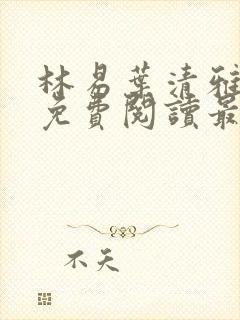 林易葉清雅
免費閱讀最
不天